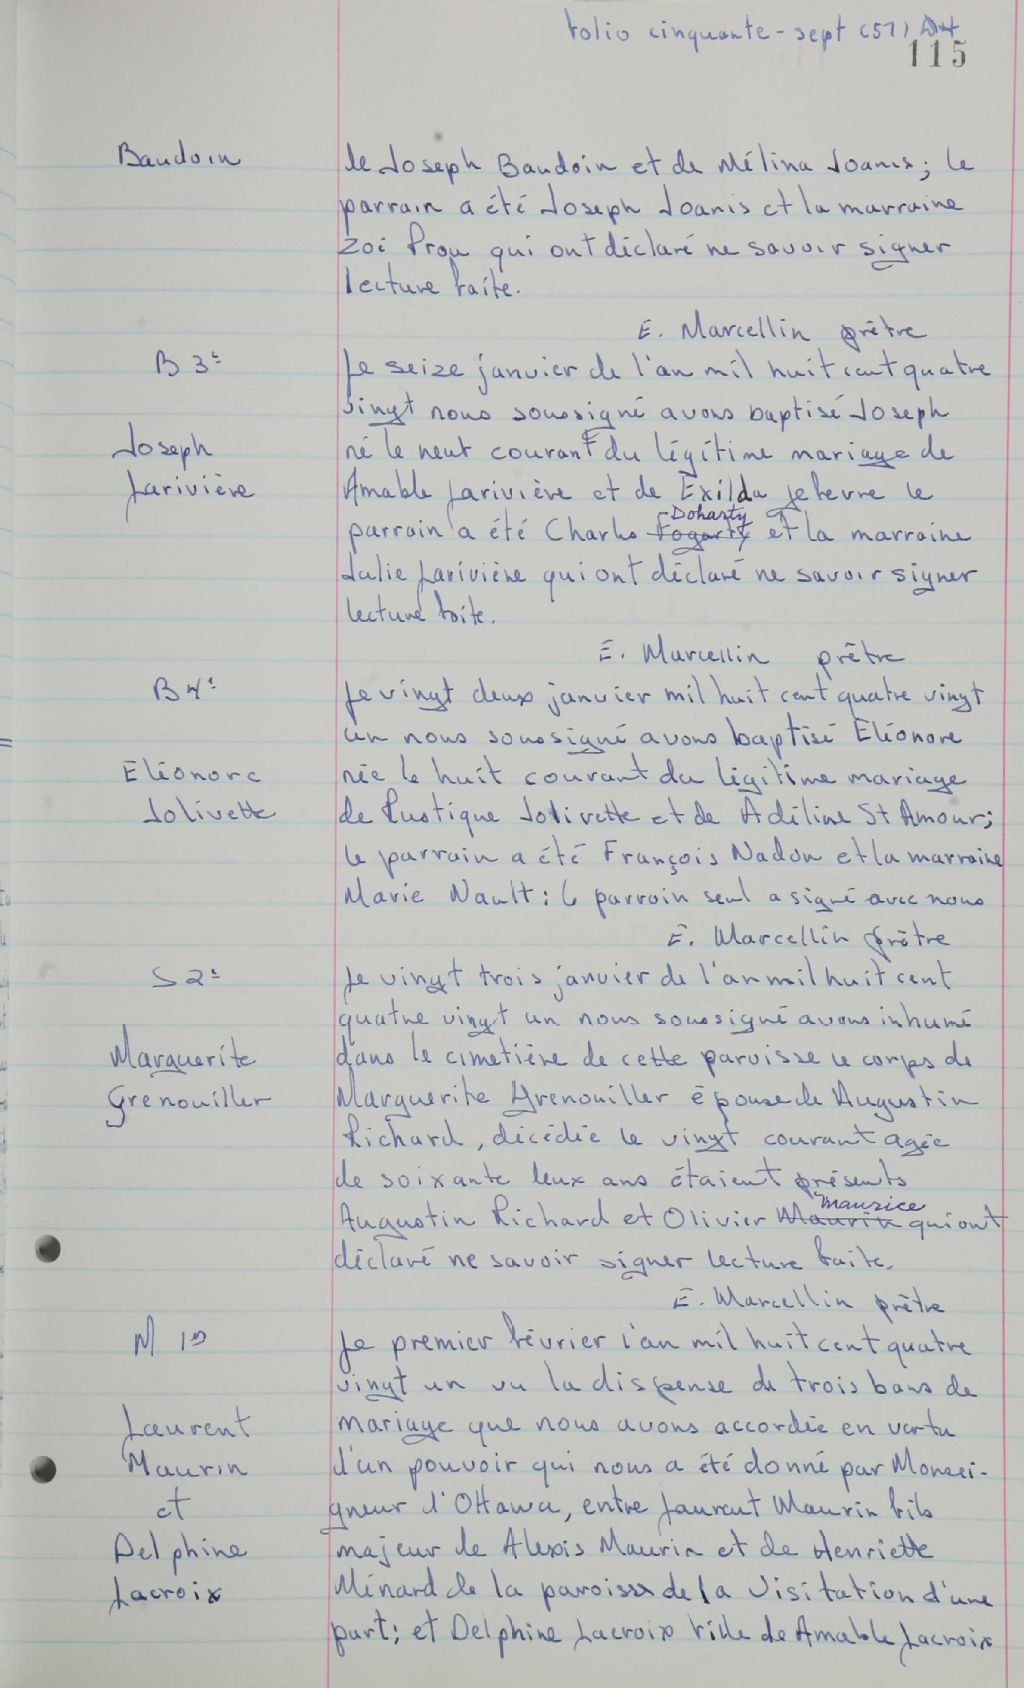 folio cinquante-sept (57)
115
Baudoin
de Joseph Baudoin et de Mélina Joanis; le
parrain a été Joseph Joanis et la marraine
Zoé Prou qui ont déclaré ne savoir signer
lecture faite.
E. Marcellin prêtre
B 3e
Le seize janvier de l'an mil huit cent quatre
vingt nous soussigné avons baptisé Joseph
Joseph
né le neuf courant du légitime mariage de
Larivière
Amable Larivière et de Exilda Lefevre le
Doharty
parrain a été Charles Fogarty et la marraine
Julie Larivière qui ont déclaré ne savoir signer
lecture faite.
E. Marcellin prêtre
B 4e
Le vingt deux janvier mil huit cent quatre vingt
un nous soussigné avons baptisé Eléonore
Eléonore
née le huit courant du légitime mariage
Jolivette
de Rustique Jolivette et de Adéline St Amour;
le parrain a été François Nadon et la marraine
Marie Nault: le parrain seul a signé avec nous
E. Marcellin prêtre
S 2e
Le vingt trois janvier de l'an mil huit cent
quatre vingt un nous soussigné avons inhumé
Marguerite
dans le cimetière de cette paroisse le corps de
Grenouiller
Marguerite Grenouiller épouse de Augustin
Richard, décédée le vingt courant agée
de soixante deux ans étaient présents
maurice
Augustin Richard et Olivier Maurin qui ont
déclaré ne savoir signer lecture faite.
E. Marcellin prêtre
M 1e
Le premier février l'an mil huit cent quatre
vingt un vu la dispense de trois bans de
Laurent
mariage que nous avons accordée en vertu
Maurin
d'un pouvoir qui nous a été donné par Monsei-
et
gneur d'Ottawa, entre Laurent Maurin fils
Delphine
majeur de Alexis Maurin et de Henriette
Lacroix
Ménard de la paroisse de la Visitation d'une
part; et Delphine Lacroix fille de Amable Lacroix